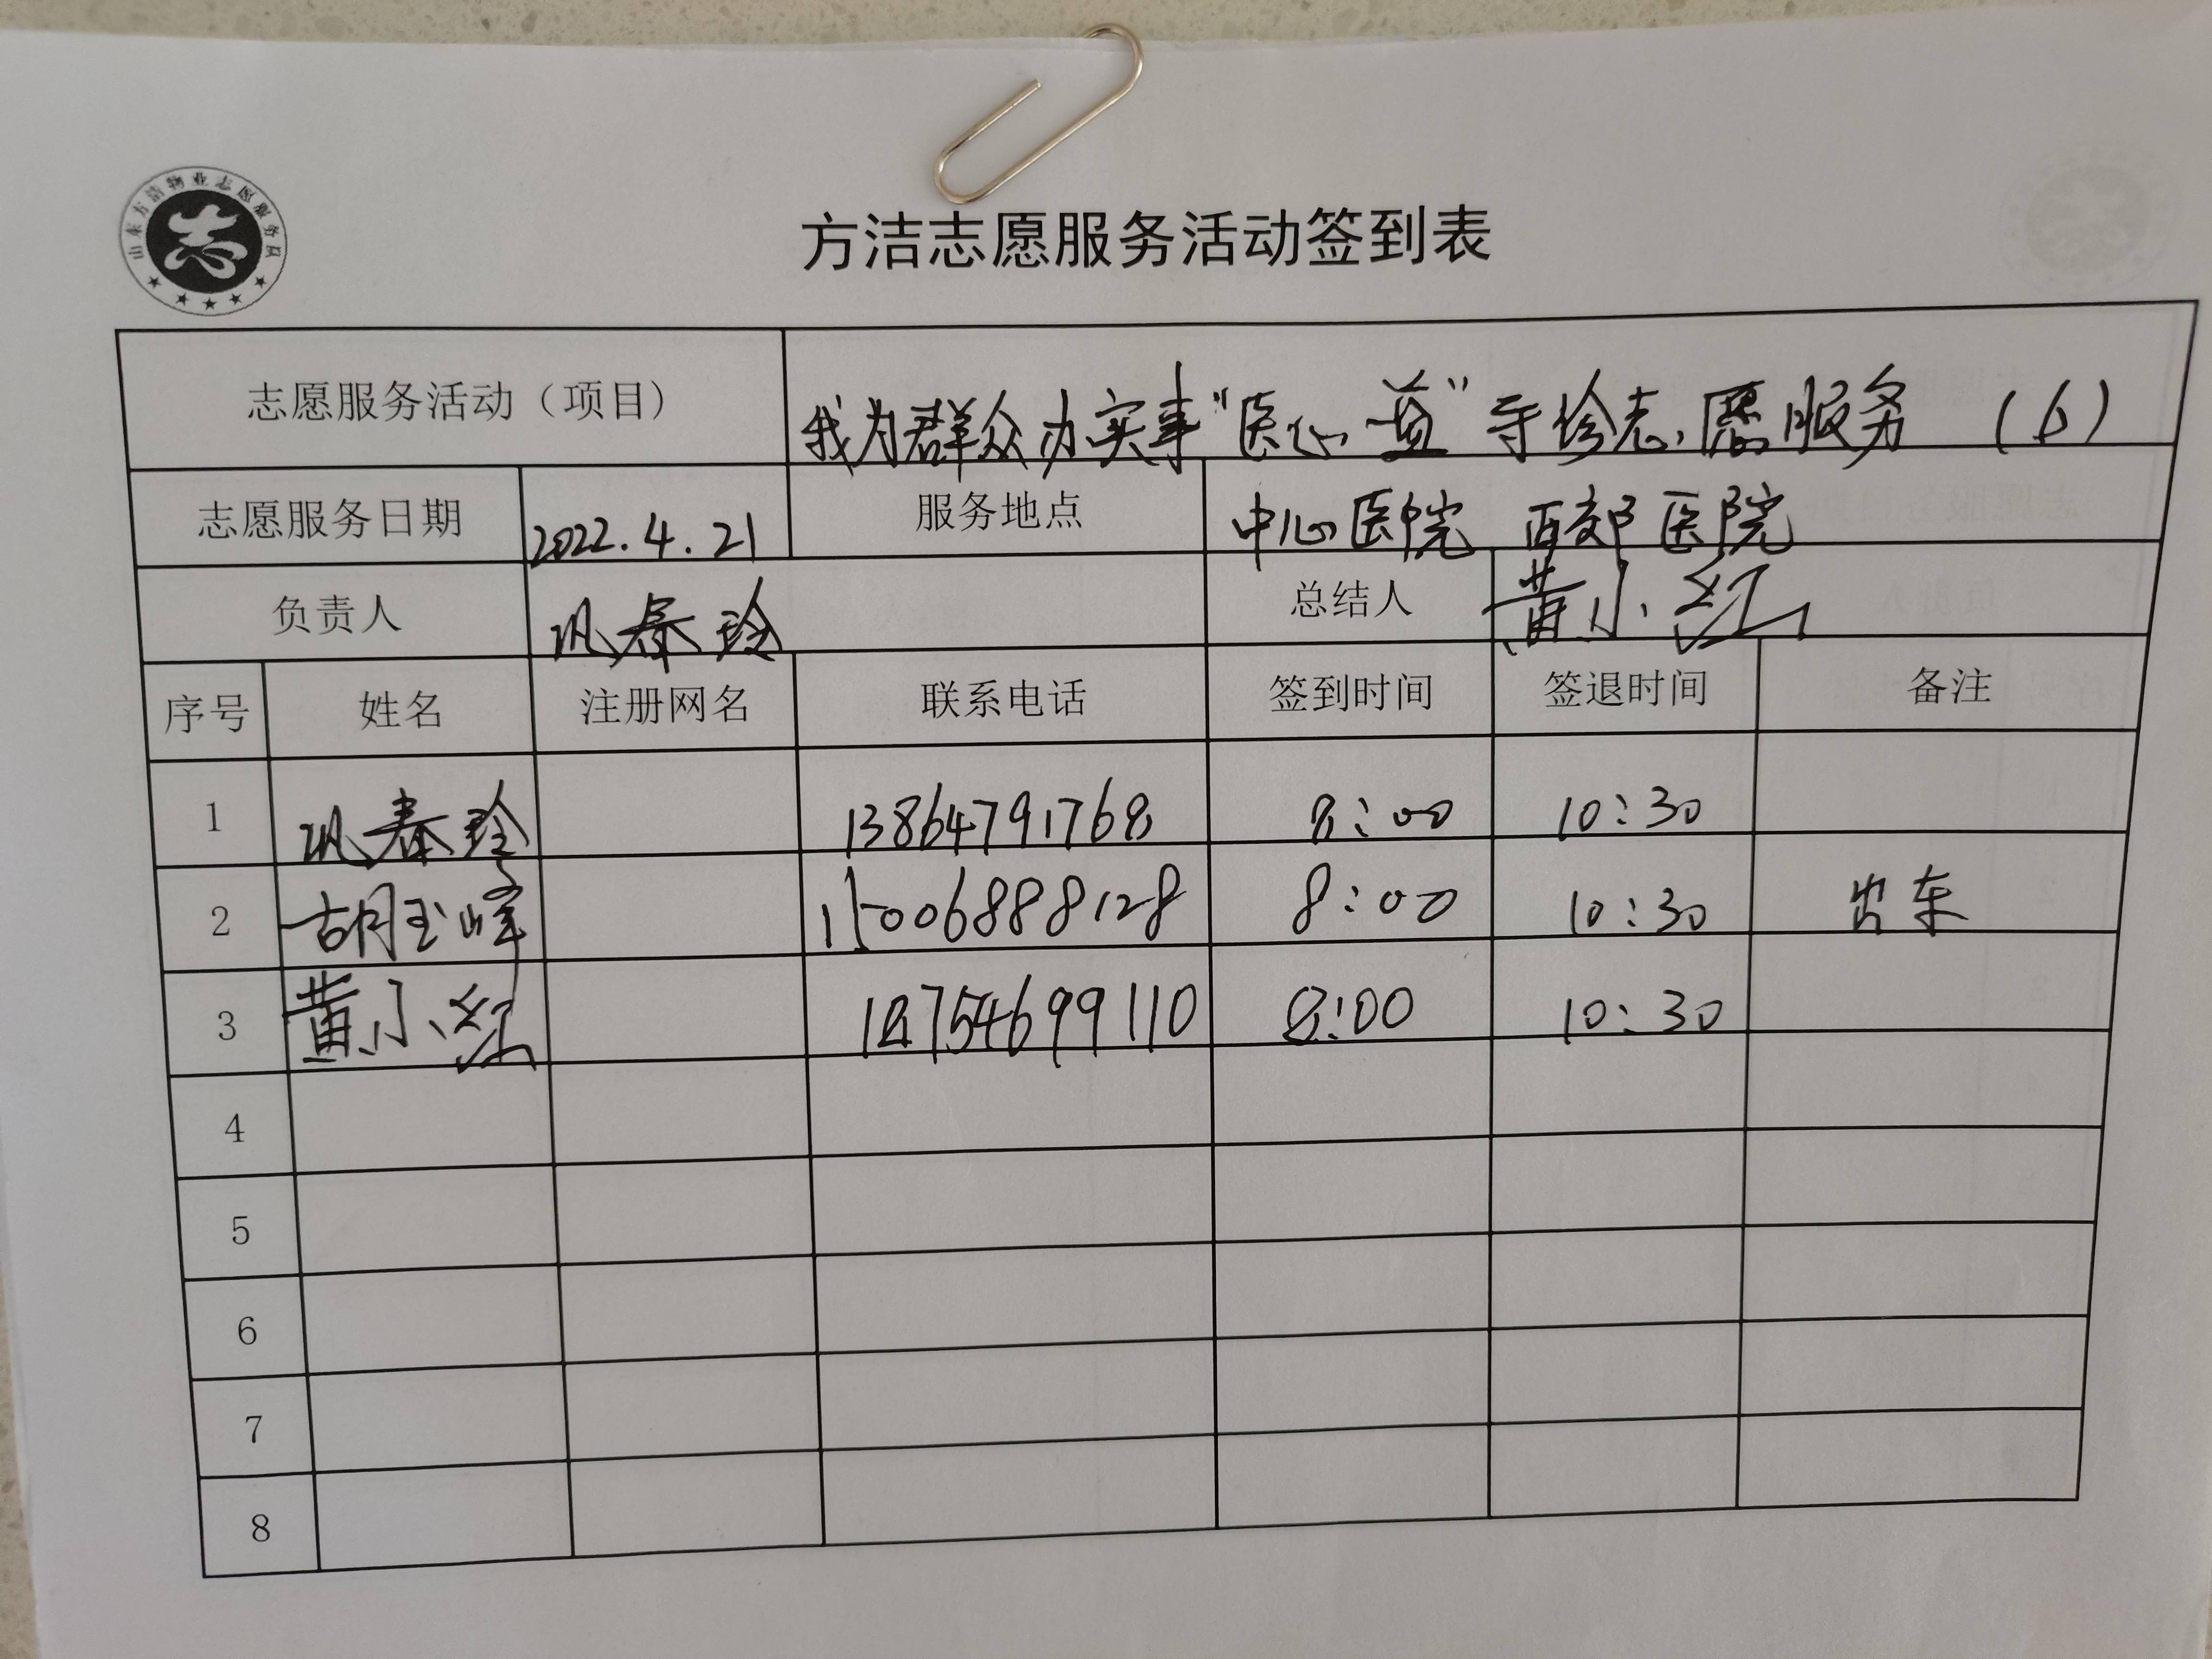 山东方洁物业志愿服务队
志
方洁志愿服务活动签到表
志愿服务活动（项目） 我为群众办实事“医心益”导诊志愿服务（6）
志愿服务日期 2022.4.21 服务地点 中心医院 西郊医院
负责人 巩春玲 总结人 黄小红
序号 姓名 注册网名 联系电话 签到时间 签退时间 备注
1 巩春玲 13864791768 8:00 10:30
2 胡玉峰 15006888128 8:00 10:30 出车
3 黄小红 18754699110 8:00 10:30
4
5
6
7
8